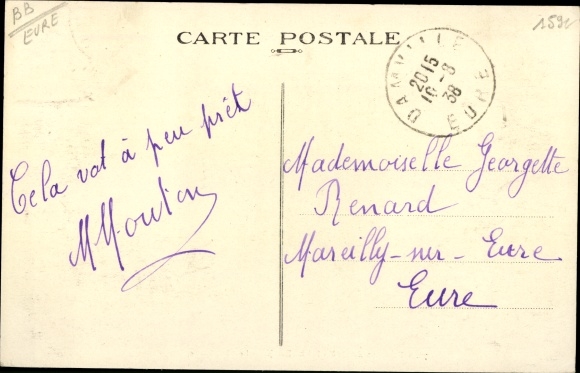 BB
EURE
159
CARTE POSTALE
DAMVILLE
2015
10-8
38
EURE
Cela vat à peu prêt
MMouton
Mademoiselle Georgette
Renard
Marcilly-sur-Eure
Eure